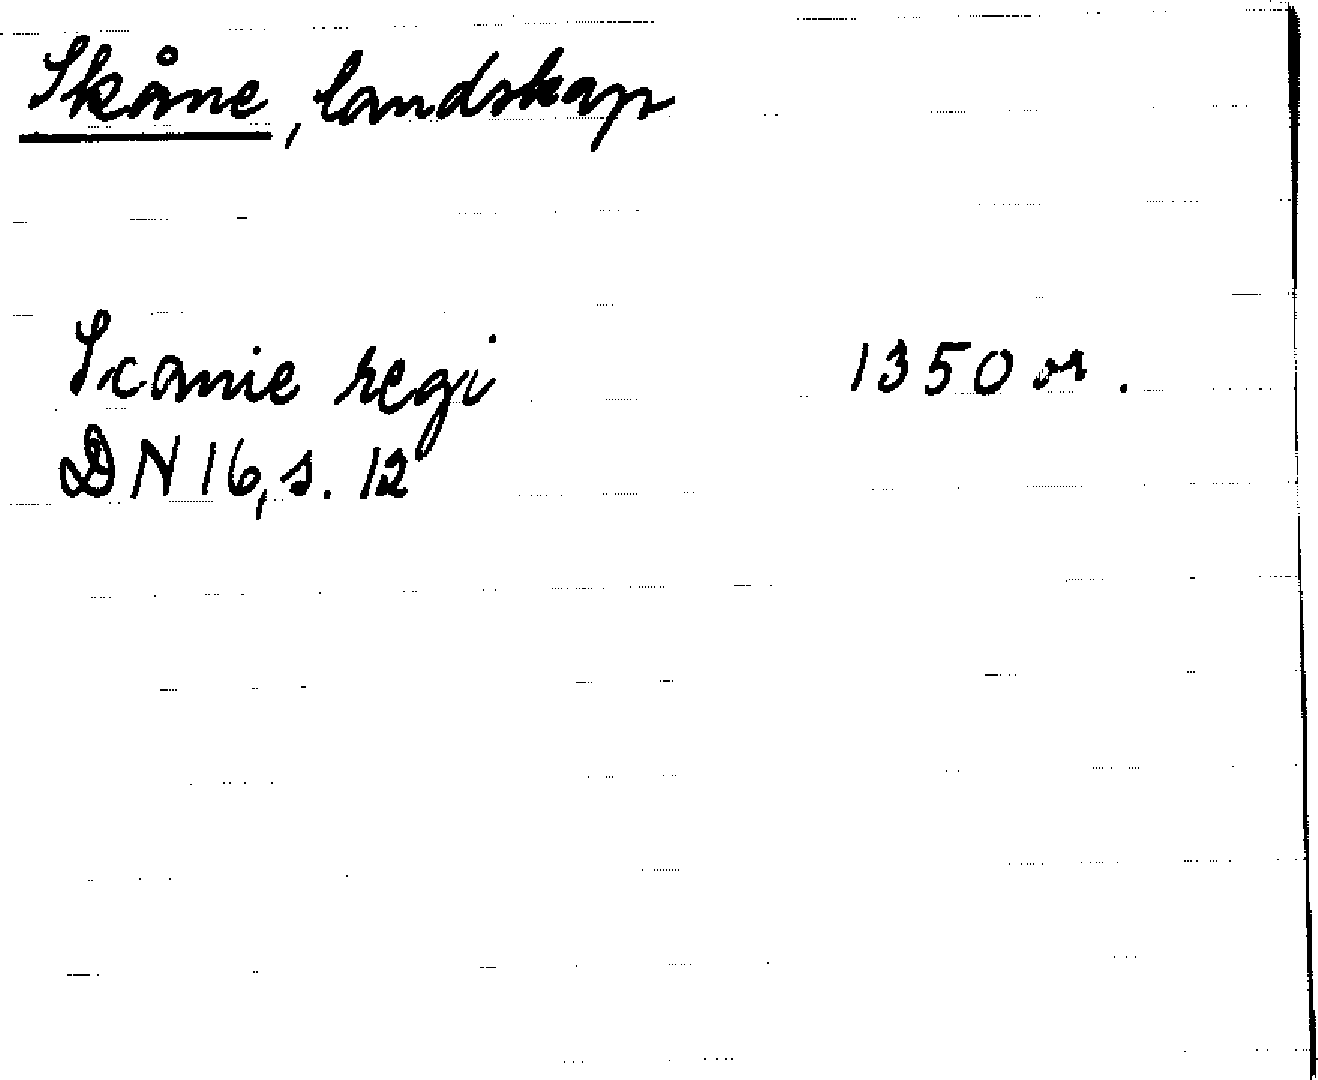 Skåne, landskap
Scanie regi 1350 or.
DN 16, s. 12